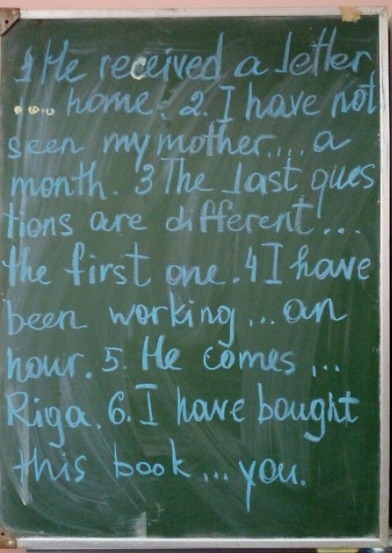 1 He received a letter
.... home. 2. I have not
seen my mother.... a
month. 3 The last ques
tions are different...
the first one. 4 I have
been working... an
hour. 5. He comes ...
Riga. 6. I have bought
this book... you.